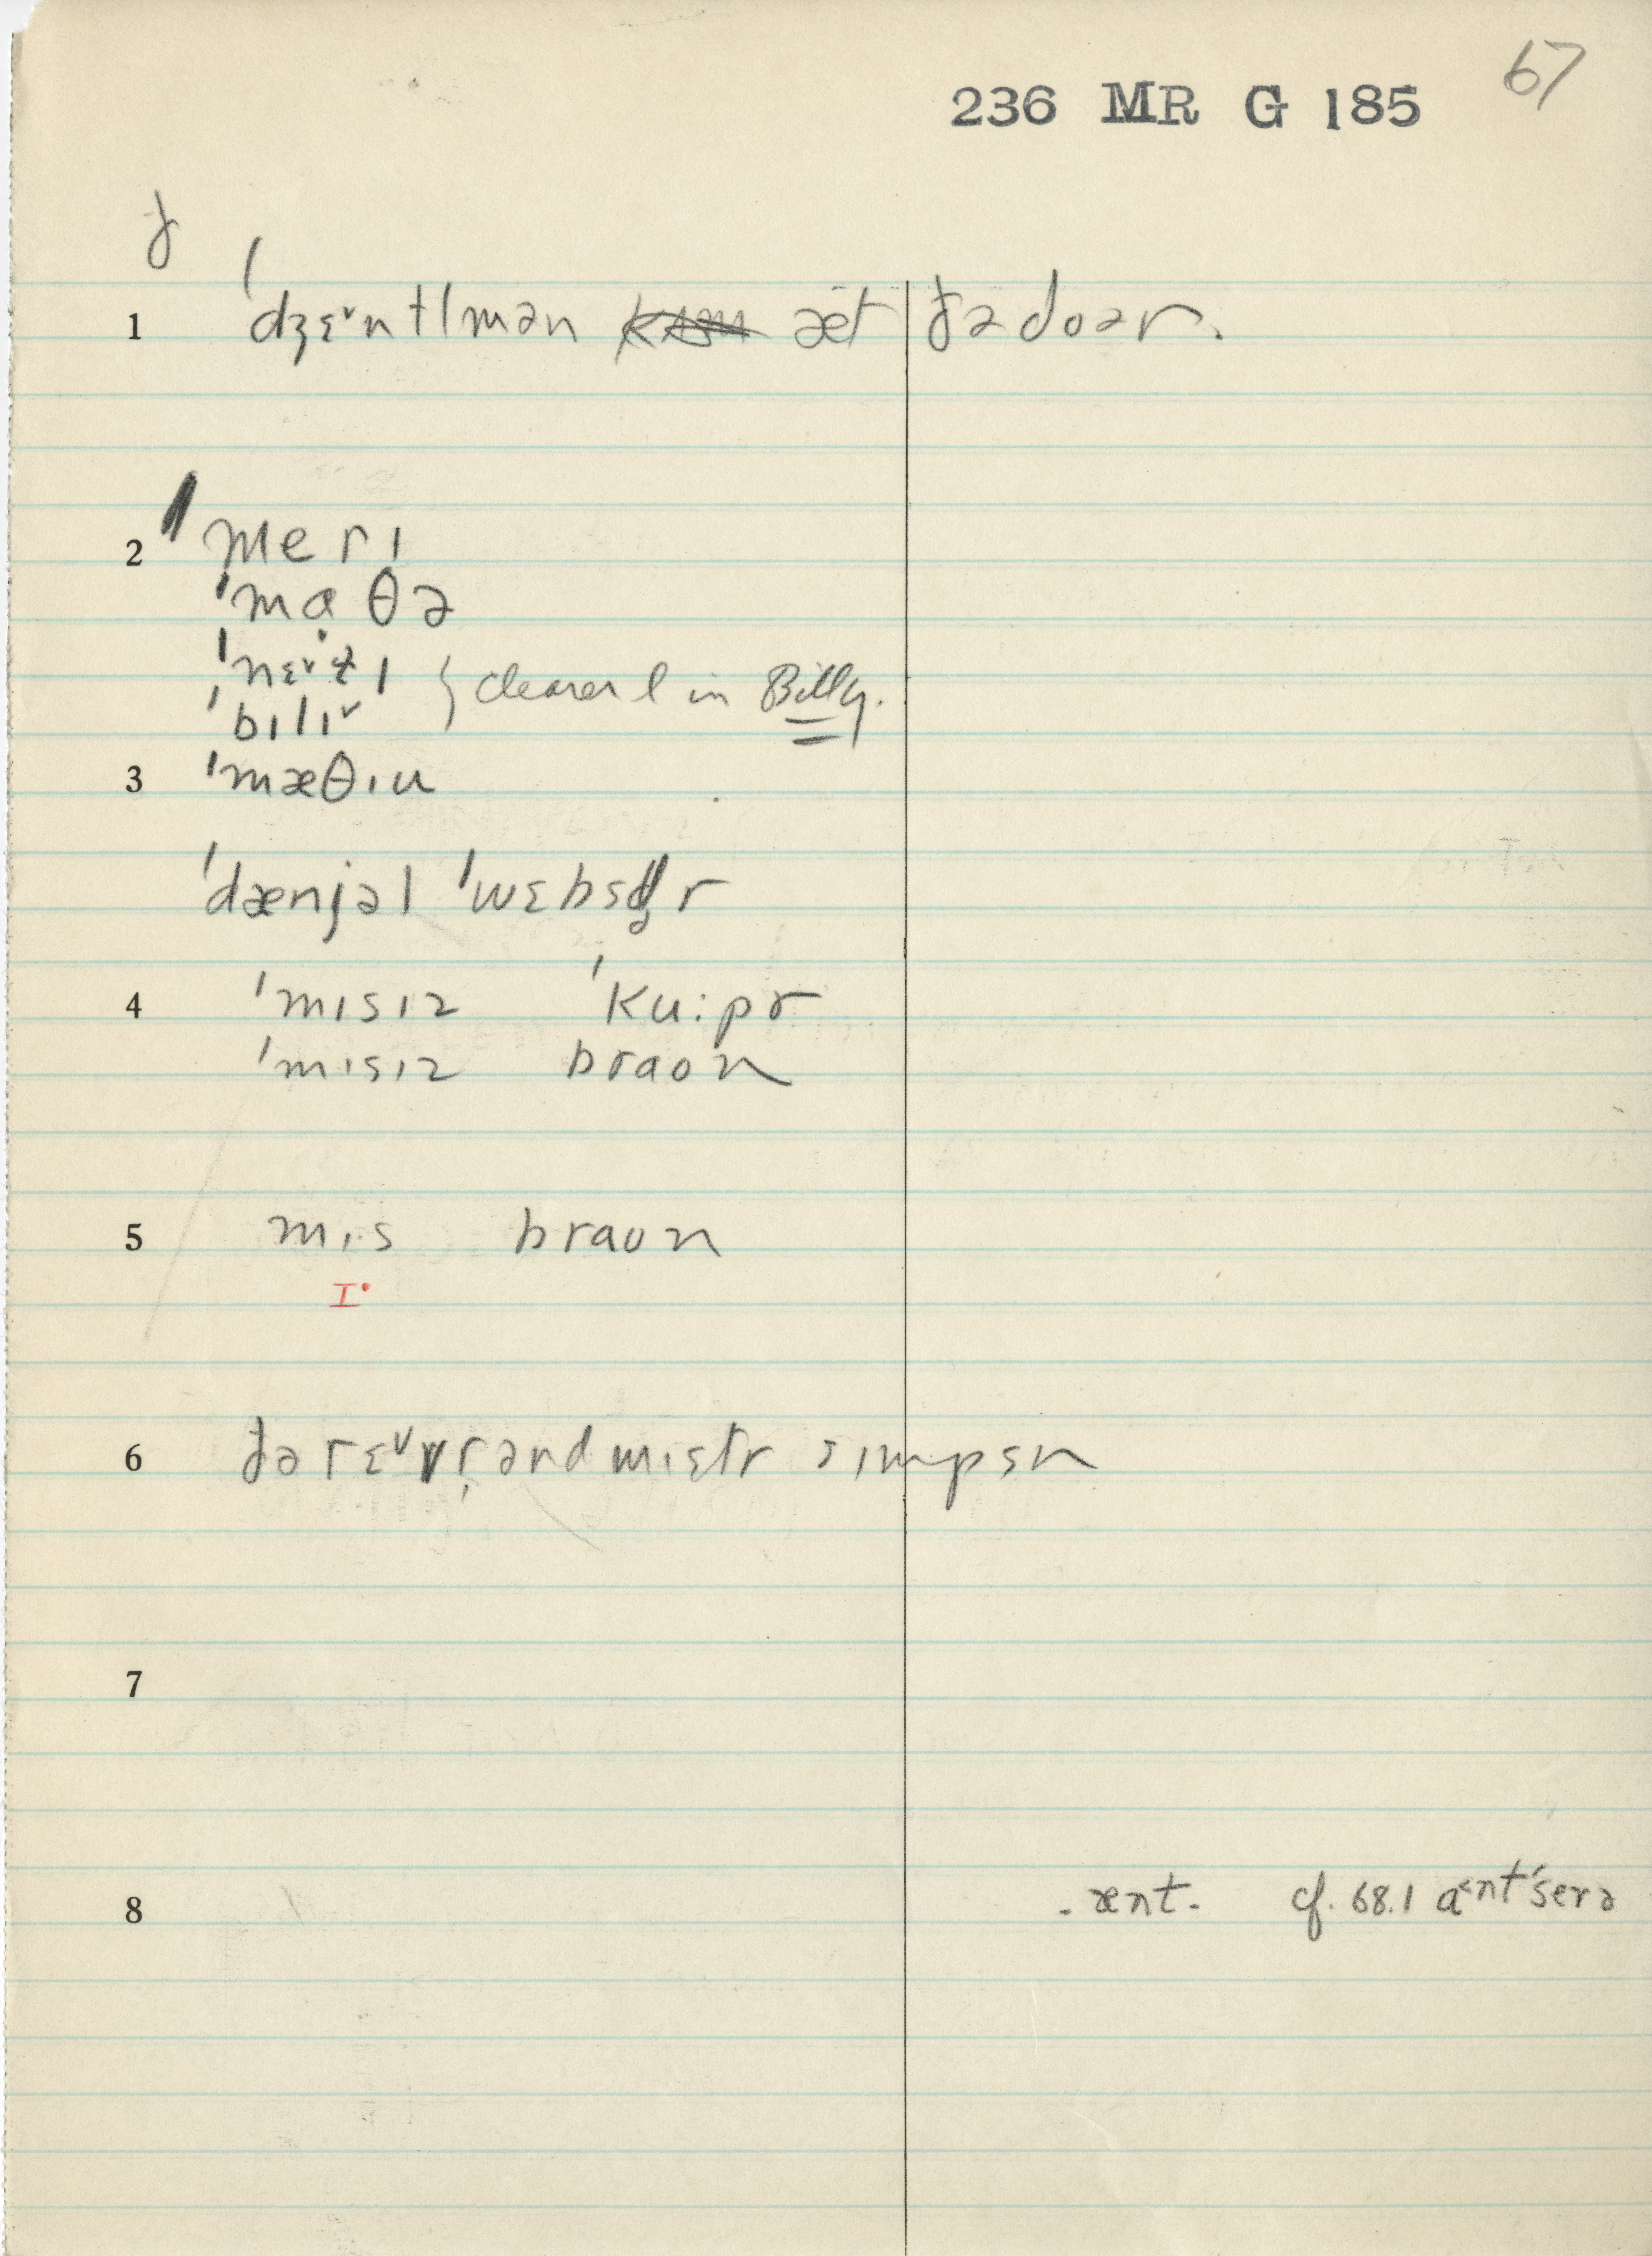 67
236 MR G 185
ꝺ
1 ˈdʒɛ˅ntlmən æt ðə doər.
2 ˈmerɪ
ˈmɑθə
ˈnɛ˅ɫɪ
ˈbɪlɪ˅ } clearer l in Billy.
3 ˈmæθɪu
ˈdænjəl ˈwɛbstr
4 ˈmɪsɪz ˈku:pr
ˈmɪsɪz braon
5 mɪs braun
I·
6 ðə rɛ˅vrənd mɪstr sɪmpsn
7
8 - ænt - cf. 68.1 a˂ntˈserə